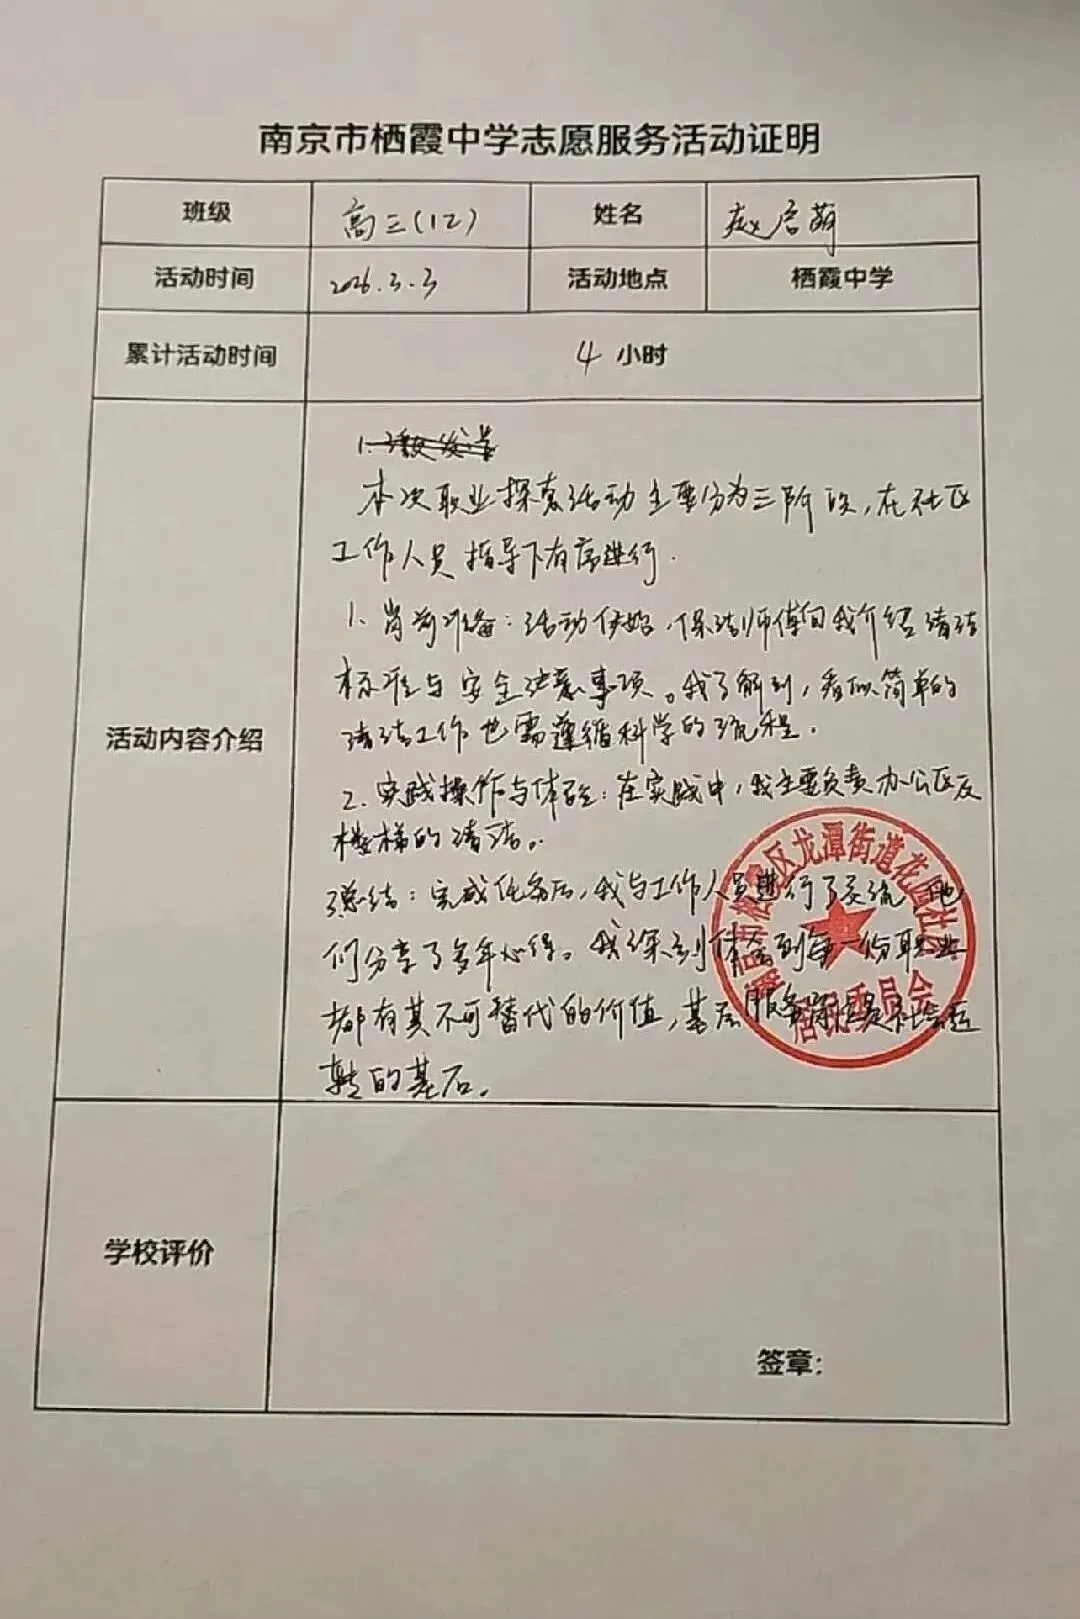 南京市栖霞中学志愿服务活动证明
班级 高三(12) 姓名 赵启萌
活动时间 2026.3.3 活动地点 栖霞中学
累计活动时间 4 小时
活动内容介绍
1.
本次职业探索活动主要分为三阶段,在社区
工作人员指导下有序进行.
1、岗前准备:活动伊始,保洁师傅向我介绍清洁
标准与安全注意事项。我了解到,看似简单的
清洁工作也需遵循科学的流程.
2.实践操作与体验:在实践中,我主要负责办公区及
楼梯的清洁.
总结:完成任务后,我与工作人员进行了交流,他
们分享了多年心得。我深刻体会到每一份职业
都有其不可替代的价值,基层服务保障是社会运
转的基石.
栖霞区龙潭街道花园社区
居民委员会
学校评价
签章: